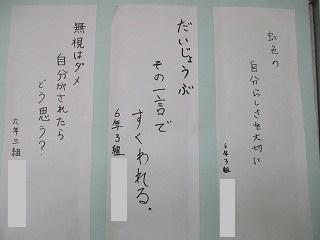 虹色の
自分らしさを大切に
6年3組
だいじょうぶ
その一言で
すくわれる.
6年3組
無視はダメ
自分がされたら
どう思う?
六年三組